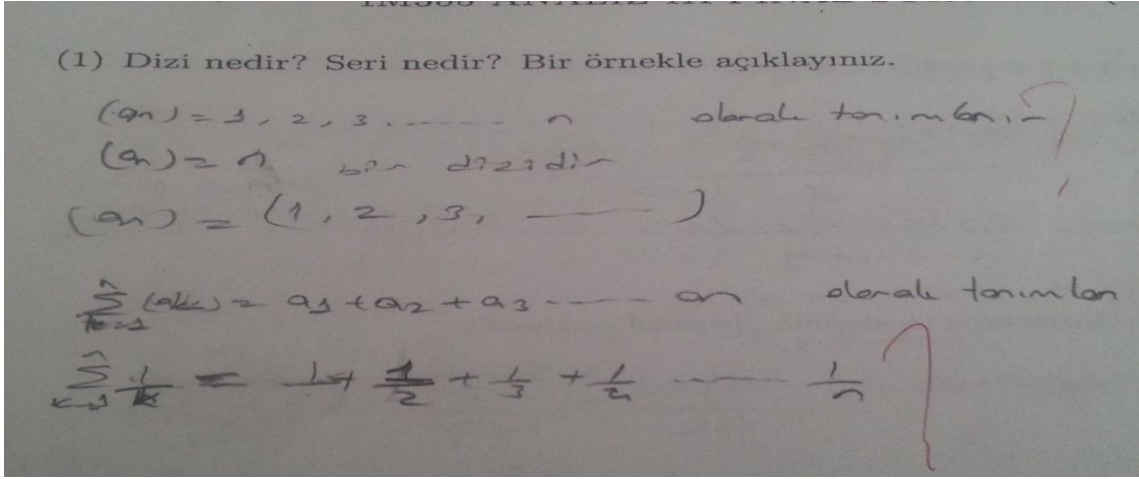 (1) Dizi nedir? Seri nedir? Bir örnekle açıklayınız.
(an) = 1, 2, 3 ....... n olarak tanımlanır ?
(an) = n bir dizidir
(an) = (1, 2, 3, ——— )
n ∑ k=1 (ak) = a1 + a2 + a3 ------ an olarak tanımlan
n ∑ k=1 1/k = 1 + 1/2 + 1/3 + 1/4 ------ 1/n ?